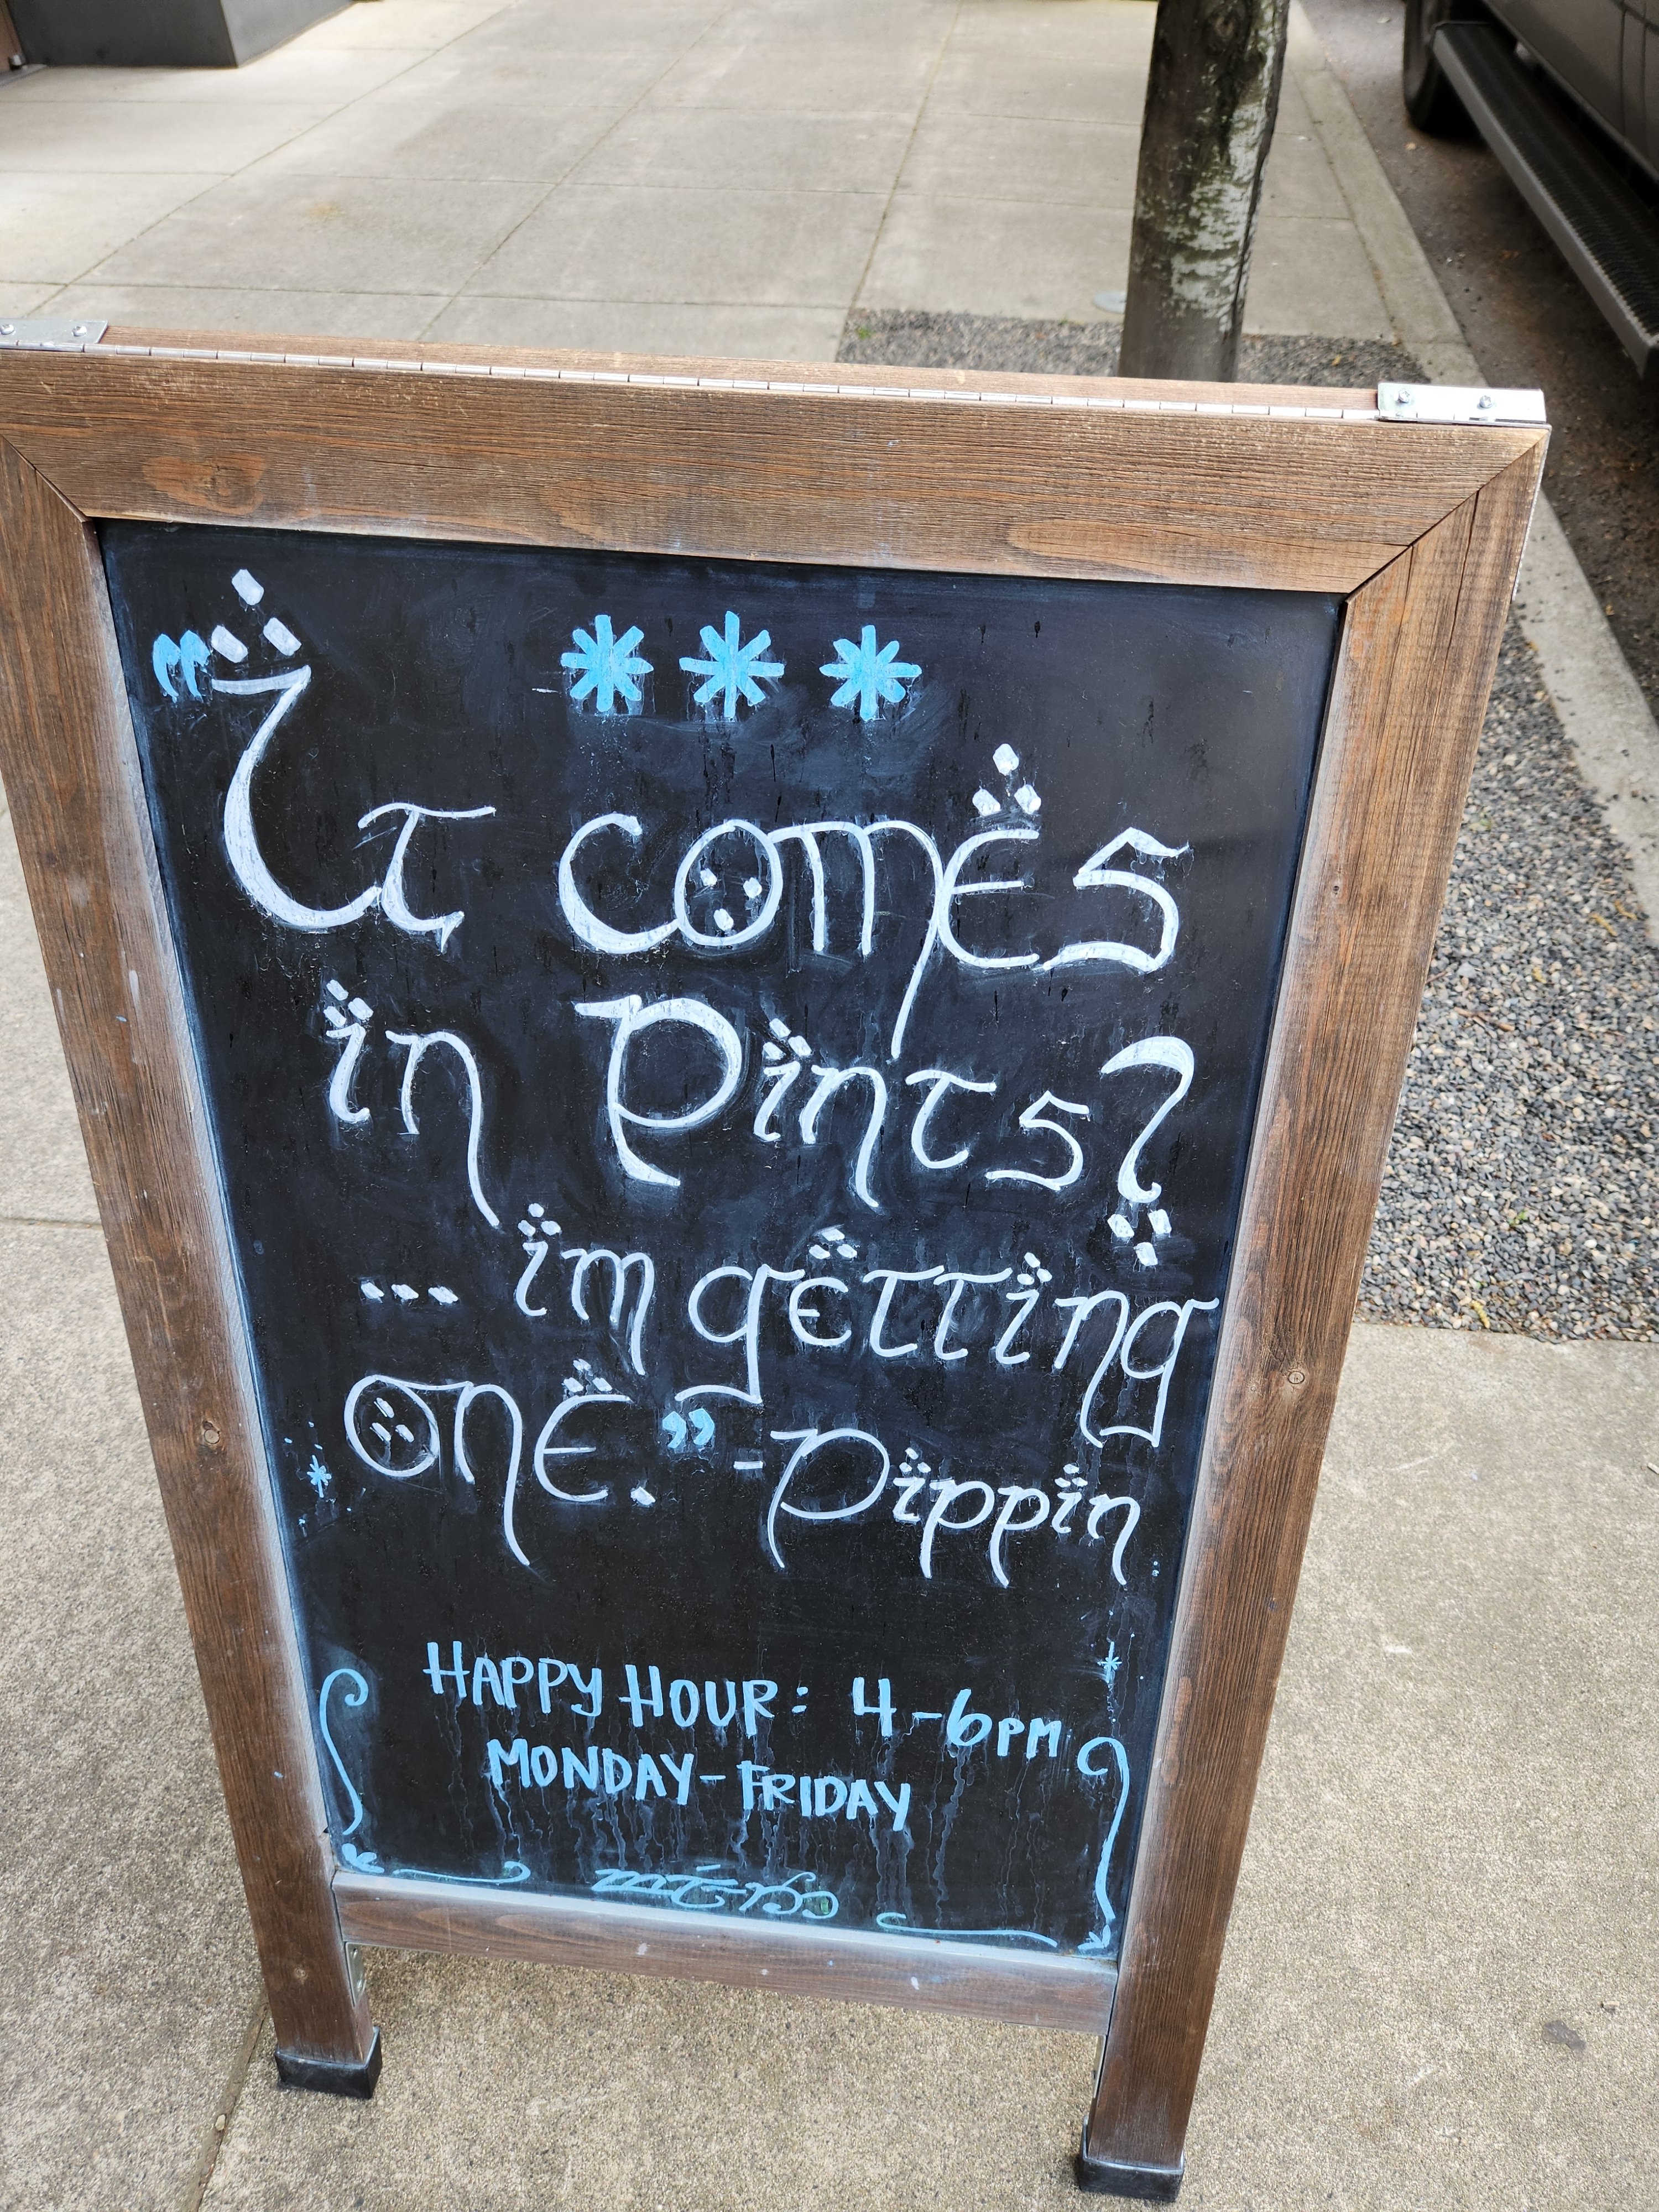 "It comes
in Pints?
... im getting
one." -Pippin
HAPPY HOUR: 4-6PM
MONDAY-FRIDAY